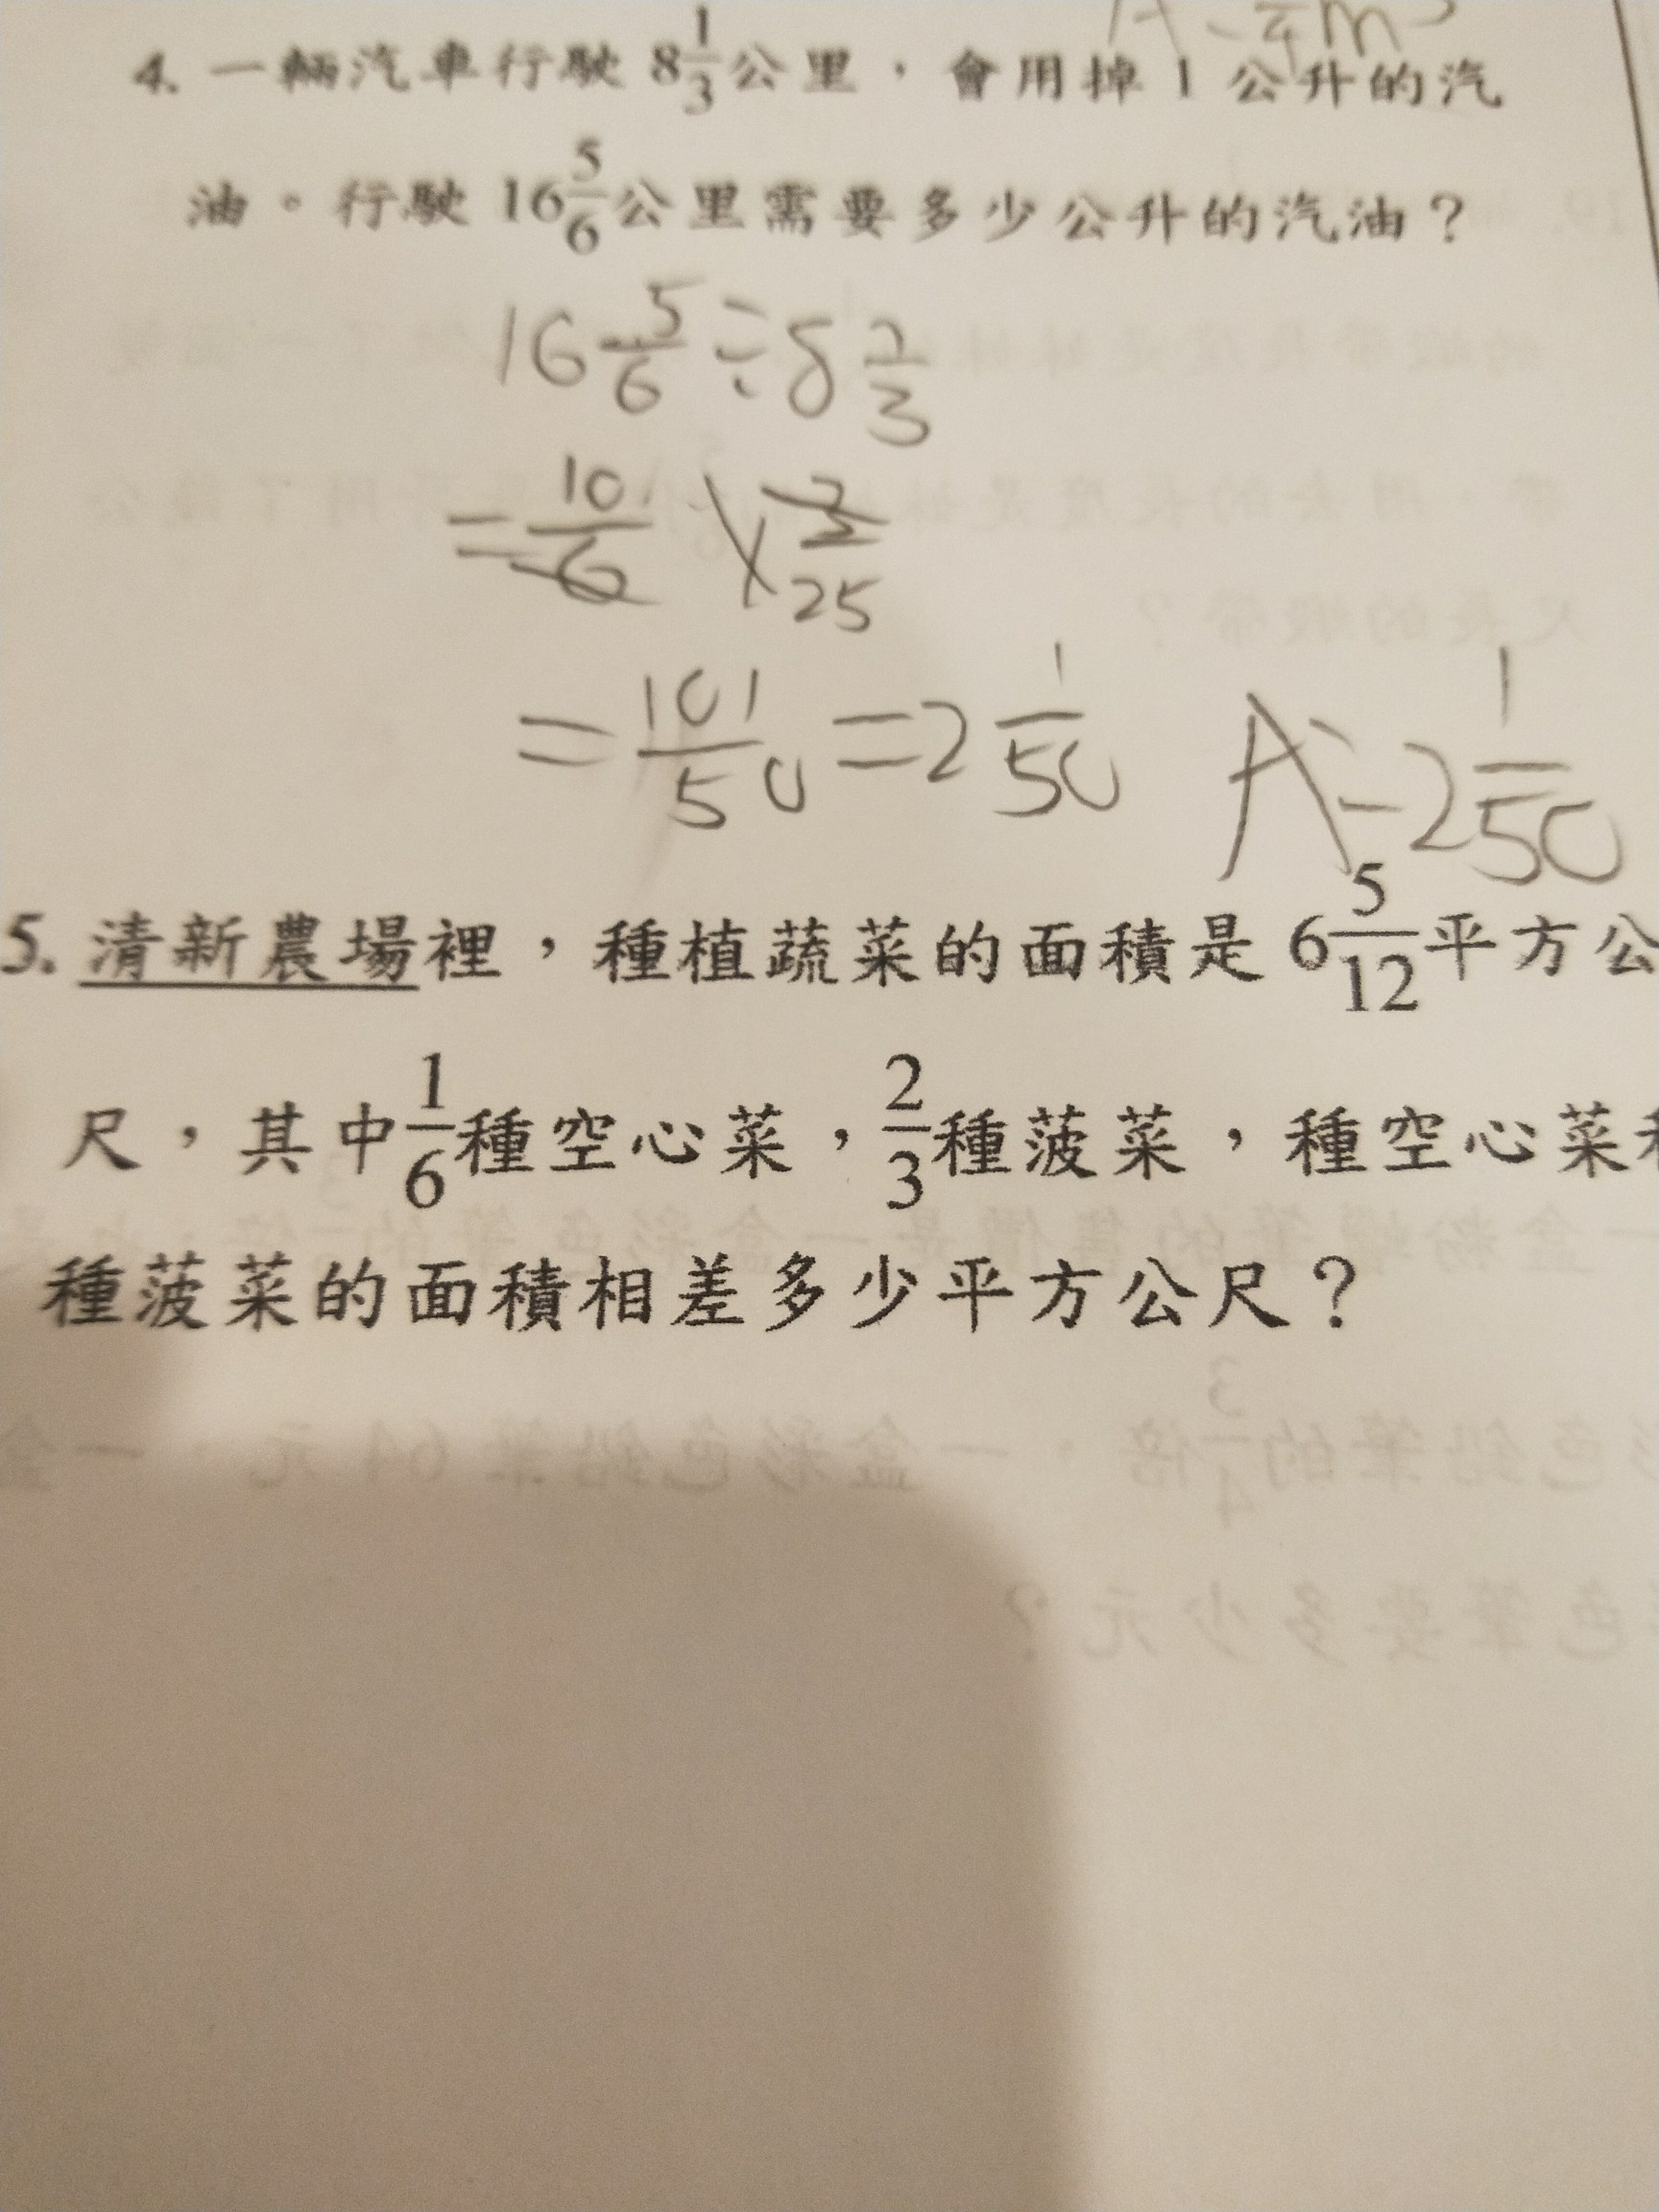 4. 一輛汽車行駛 8 1/3 公里，會用掉 1 公升的汽
油。行駛 16 5/6 公里需要多少公升的汽油？
16 5/6 ÷ 8 1/3
= 101/6 × 3/25
= 101/50 = 2 1/50 A: 2 1/50
5. 清新農場裡，種植蔬菜的面積是 6 5/12 平方公
尺，其中 1/6 種空心菜，2/3 種菠菜，種空心菜
種菠菜的面積相差多少平方公尺？